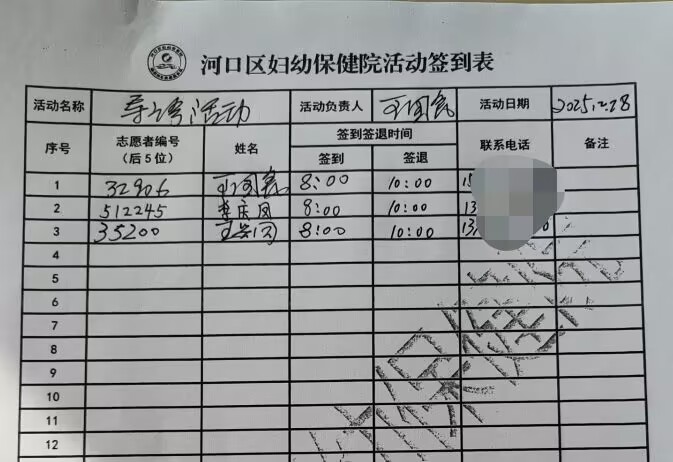 河口区妇幼保健院活动签到表
活动名称 导诊活动 活动负责人 活动日期 2025.12.28
序号 志愿者编号（后5位） 姓名 签到签退时间 联系电话 备注
签到 签退
1 32906 8:00 10:00 15
2 512245 李庆凤 8:00 10:00 13
3 35200 8:00 10:00 13
4
5
6
7
8
9
10
11
12